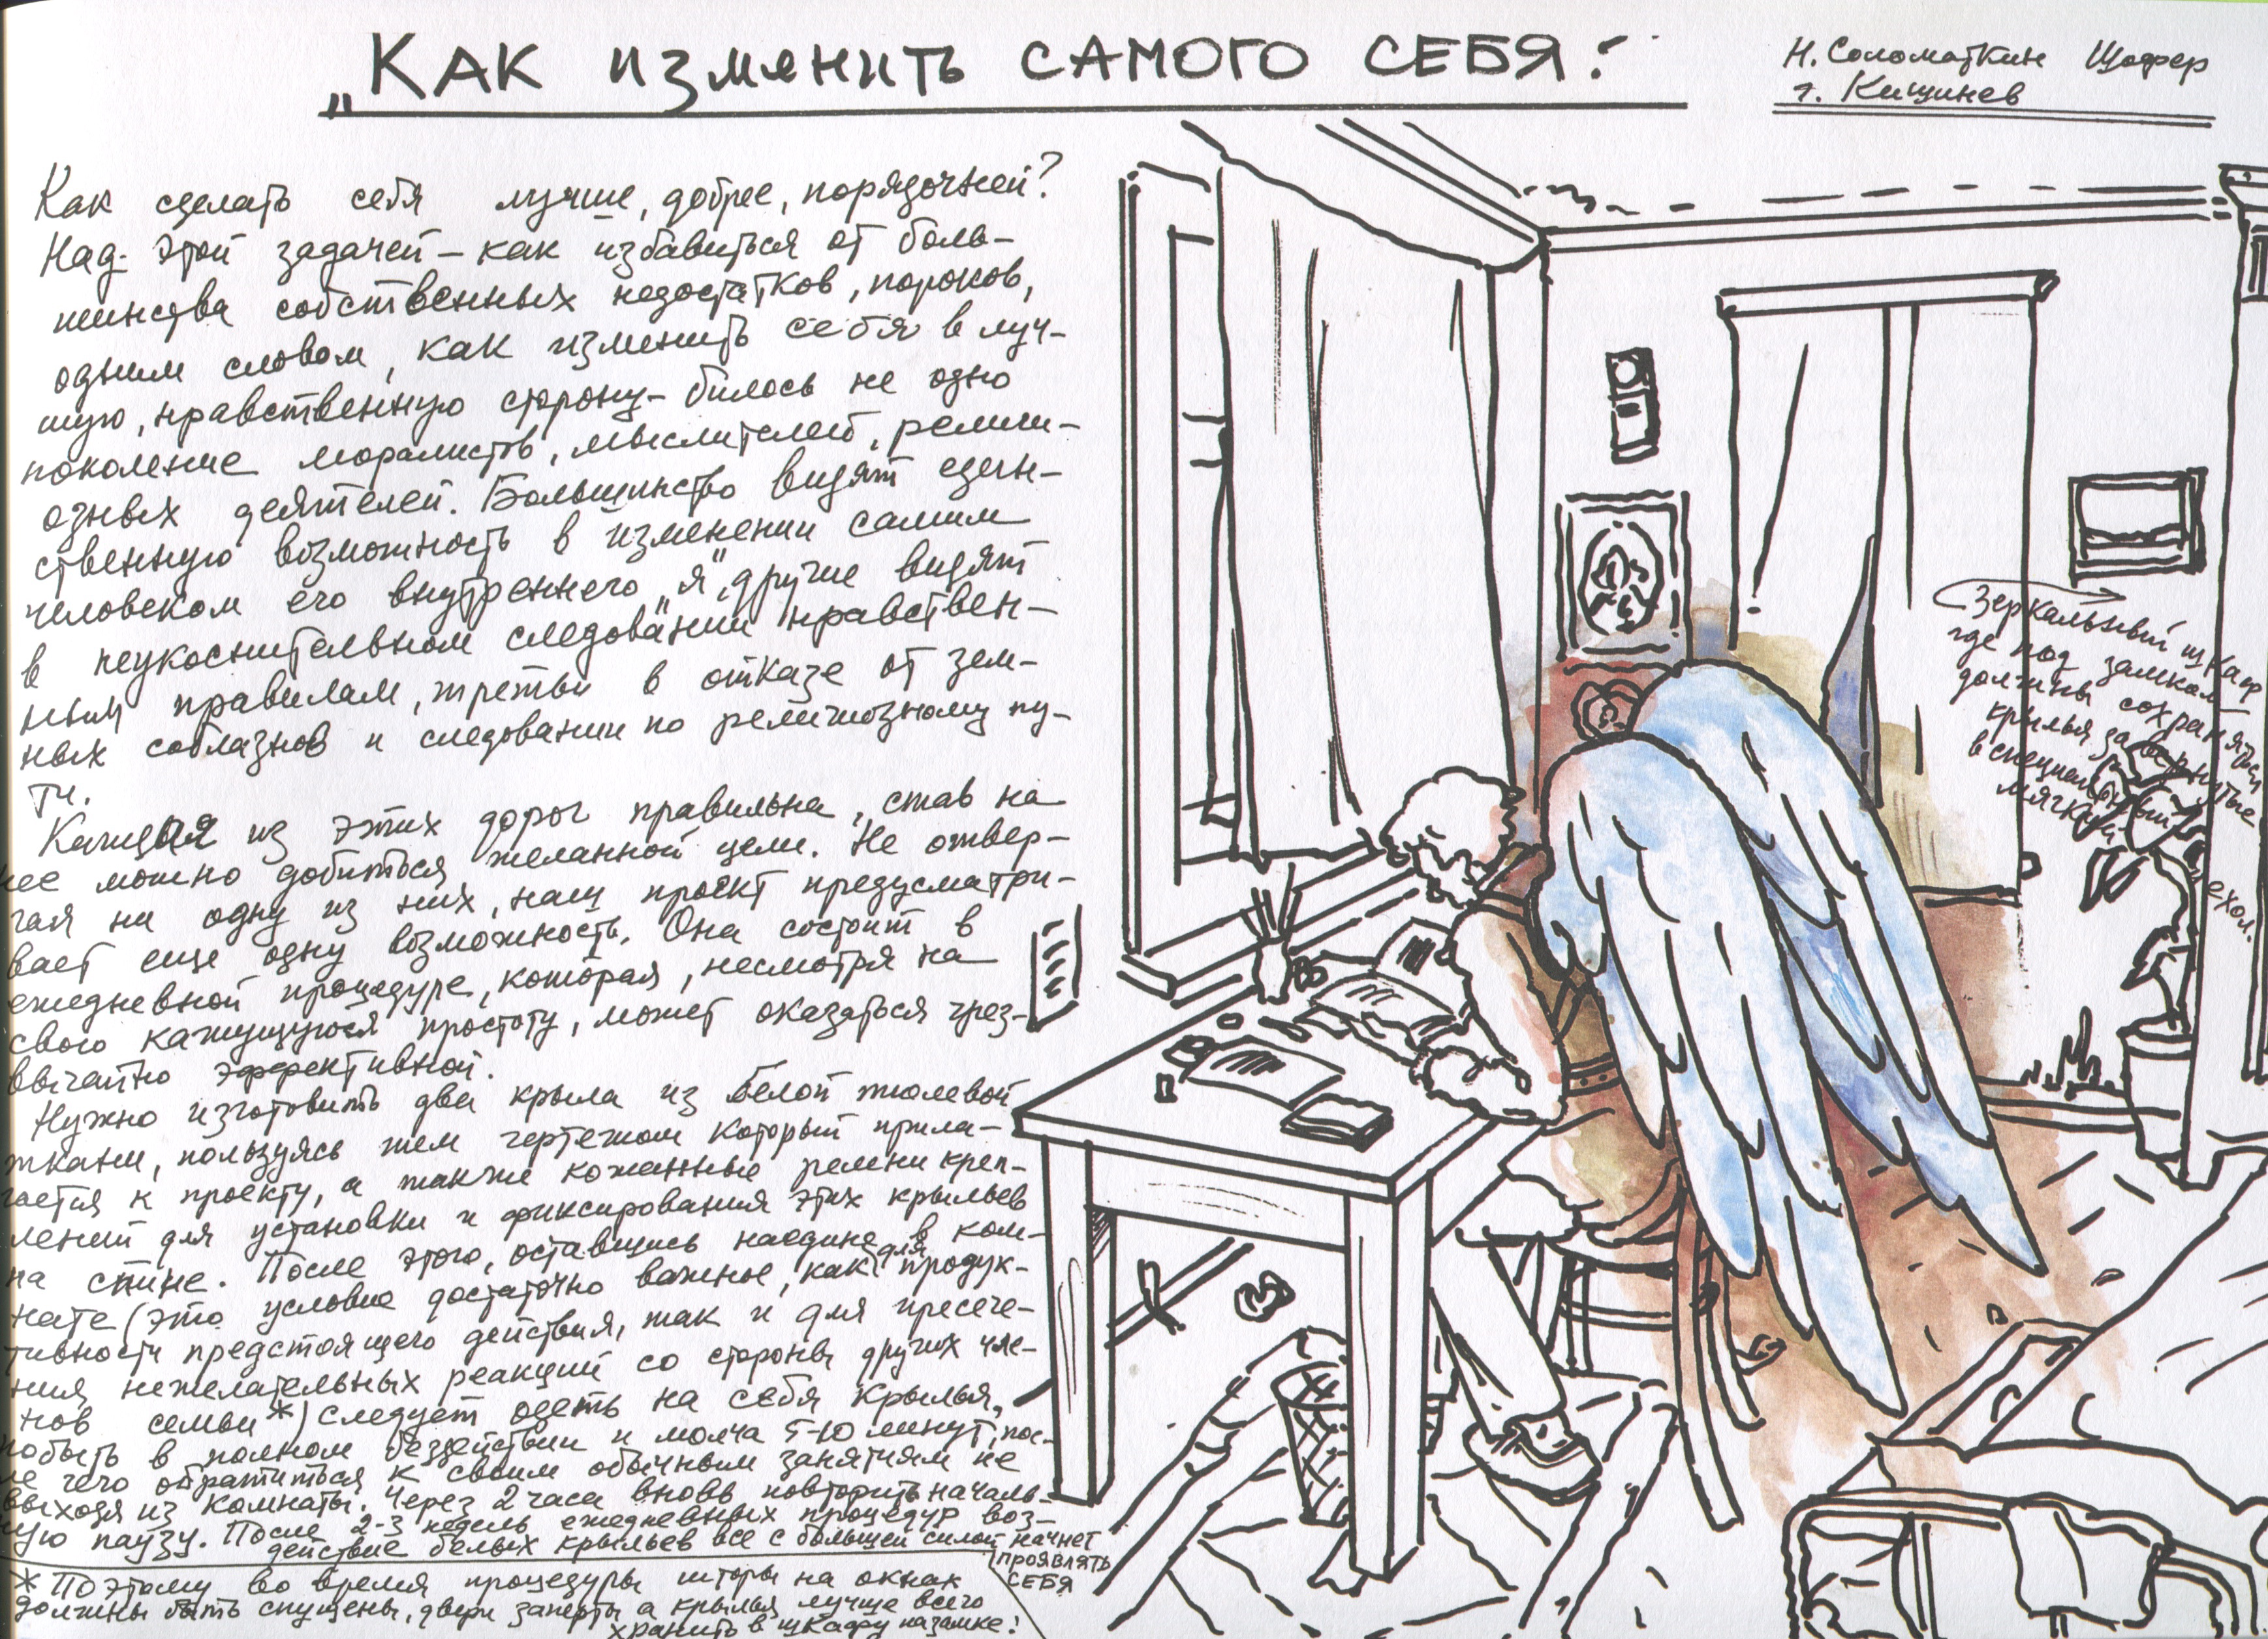 „Как изменить самого себя?
Н. Соломаткин Шофер
г. Кишинев
Как сделать себя лучше, добрее, порядочней?
Над этой задачей – как избавиться от боль-
шинства собственных недостатков, пороков,
одним словом, как изменить себя в луч-
шую, нравственную сторону – билось не одно
поколение моралистов, мыслителей, религи-
озных деятелей. Большинство видят един-
ственную возможность в изменении самим
человеком его внутреннего „я", другие видят
в неукоснительном следовании нравствен-
ным правилам, третьи в отказе от зем-
ных соблазнов и следовании по религиозному пу-
ти.
Каждая из этих дорог правильна, став на
нее можно добиться желанной цели. Не отвер-
гая ни одну из них, наш проект предусматри-
вает еще одну возможность. Она состоит в
ежедневной процедуре, которая, несмотря на
свою кажущуюся простоту, может оказаться чрез-
вычайно эффективной.
Нужно изготовить два крыла из белой тюлевой
ткани, пользуясь тем чертежом который прила-
гается к проекту, а также кожанные ремни креп-
лений для установки и фиксирования этих крыльев
на спине. После этого, оставшись наедине в ком-
нате (это условие достаточно важное, как для продук-
тивности предстоящего действия, так и для пресече-
ния нежелательных реакций со стороны других чле-
нов семьи*) следует одеть на себя крылья,
побыть в полном бездействии и молча 5-10 минут, пос-
ле чего обратиться к своим обычным занятиям не
выходя из комнаты. Через 2 часа вновь повторить началь-
ную паузу. После 2-3 недель ежедневных процедур воз-
действие белых крыльев все с большей силой начнет
проявлять
себя
* Поэтому во время процедуры шторы на окнах
должны быть спущены, двери заперты а крылья лучше всего
хранить в шкафу на замке!
Зеркальный шкаф
где под замком
должны сохраняться
крылья завернутые
в специальный
мягкий
чехол.